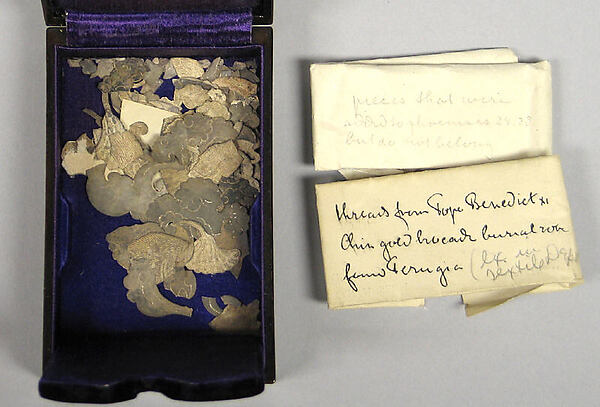 pieces that were
added to phoenixes 24.23
but do not belong
threads from Pope Benedict XI
Chin gold brocade burial robe
from Perugia (Ex. in
Textile Dept